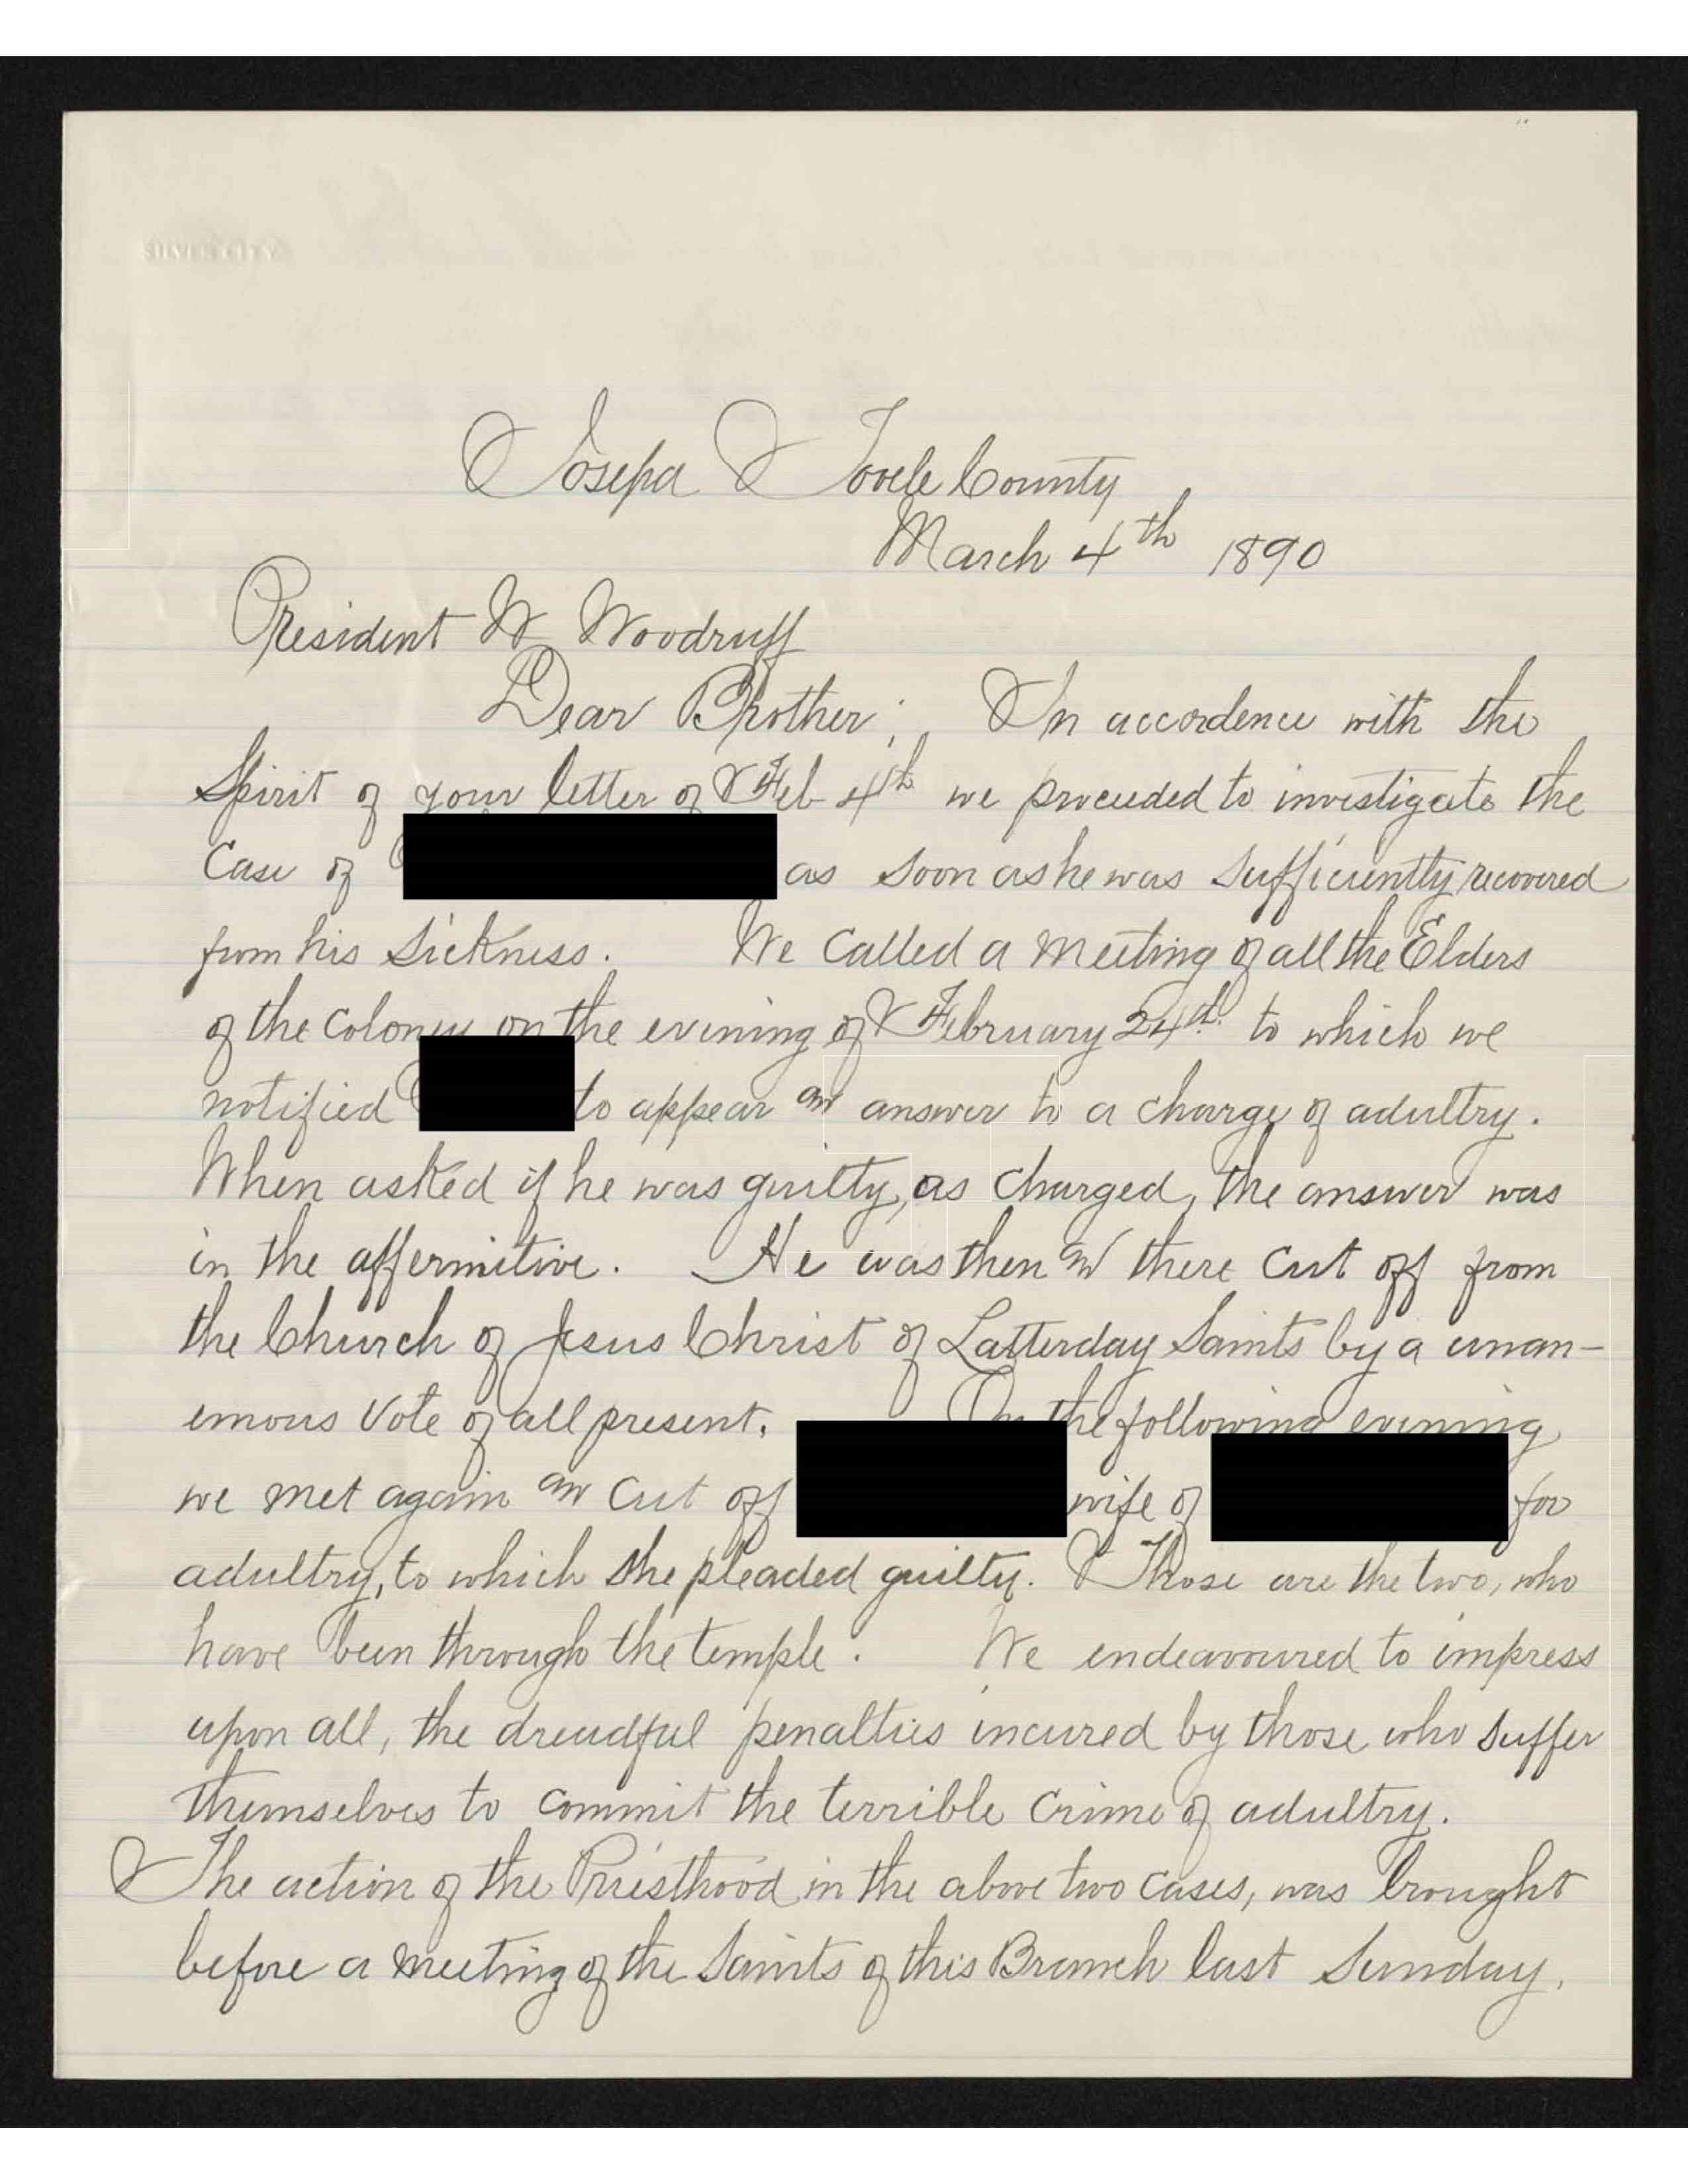 SILVER CITY
Iosepa Tooele County
March 4th 1890
President W Woodruff
Dear Brother; In accordence with the
Spirit of your letter of Feb 4th we proceeded to investigate the
Case of as soon as he was sufficiently recovered
from his sickness. We called a meeting of all the Elders
of the colony on the evening of February 24th to which we
notified to appear an answer to a charge of adultry.
When asked if he was guilty, as charged, the answer was
in the affermitive. He was then an there cut off from
the Church of Jesus Christ of Latterday Saints by a unan-
imous vote of all present. On the following evening
we met again an cut off wife of for
adultry, to which she pleaded guilty. Those are the two, who
have been through the temple. We endeavoured to impress
upon all, the dreadful penalties incured by those who suffer
themselves to commit the terrible crime of adultry.
The action of the Priesthood in the above two cases, was brought
before a meeting of the Saints of this Branch last Sunday.